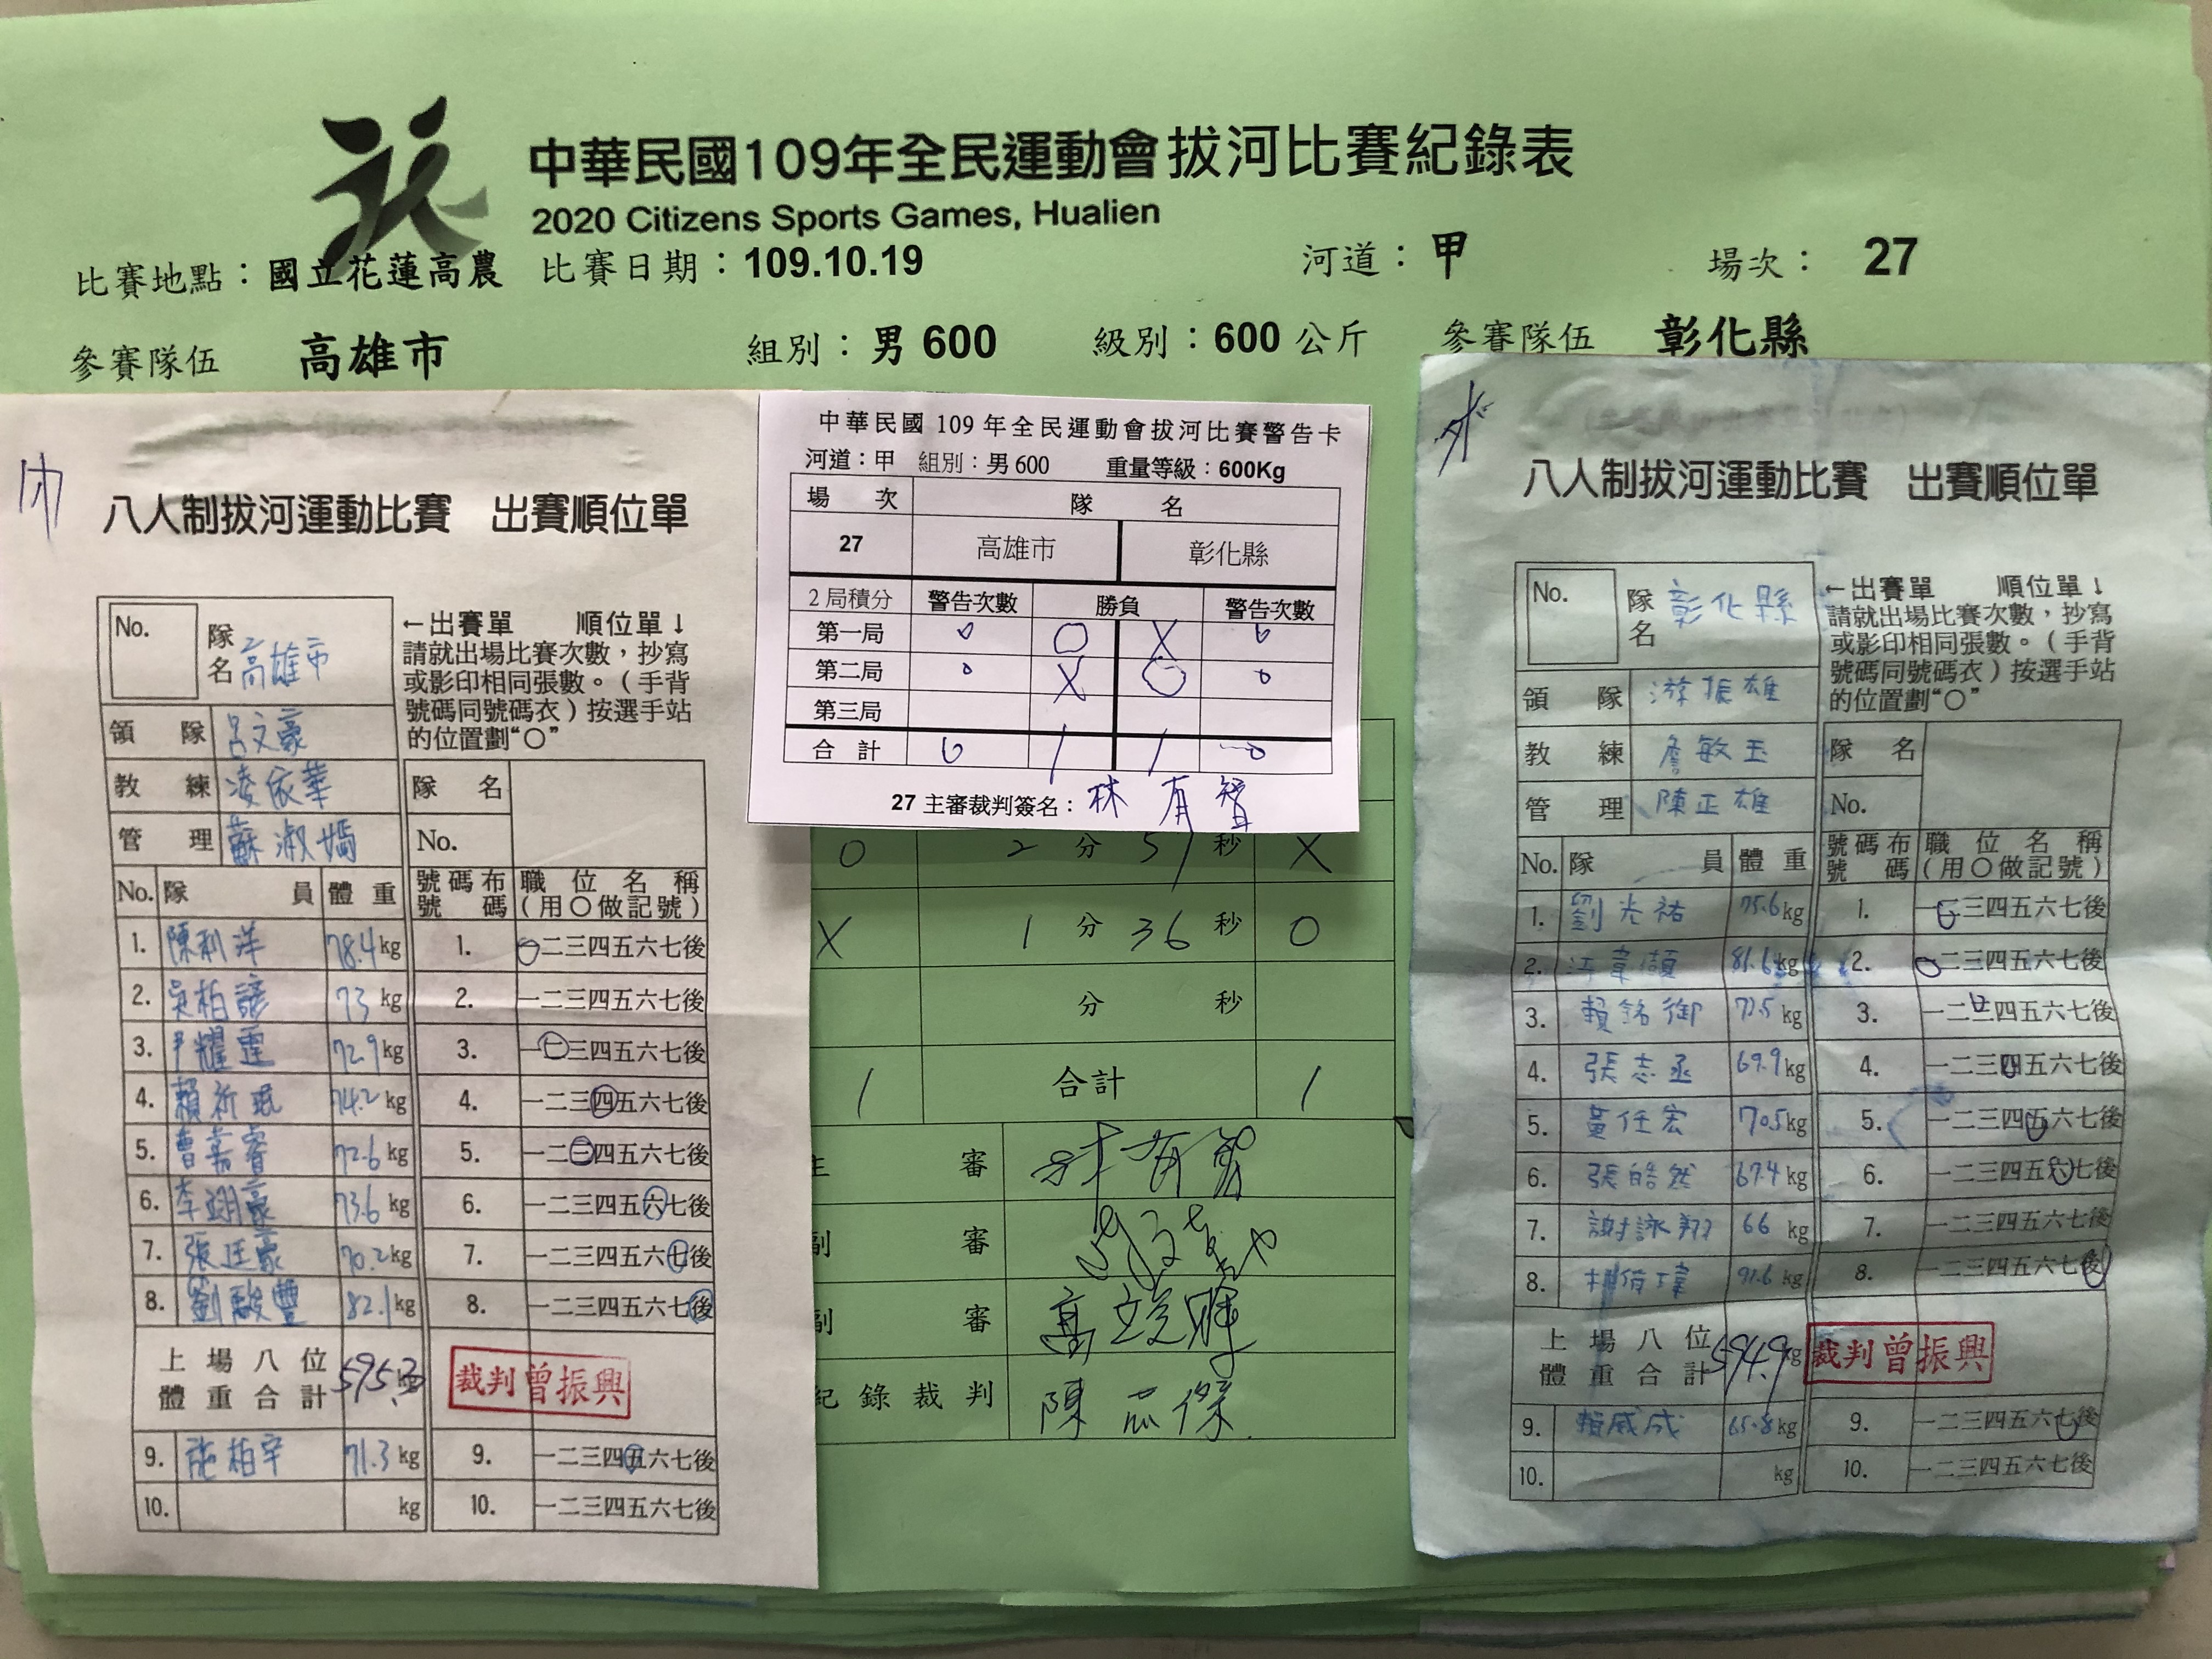 中華民國109年全民運動會拔河比賽紀錄表
2020 Citizens Sports Games, Hualien
比賽地點：國立花蓮高農 比賽日期：109.10.19 河道：甲 場次： 27
參賽隊伍 高雄市 組別：男 600 級別：600 公斤 參賽隊伍 彰化縣
八人制拔河運動比賽 出賽順位單
No. 隊名 高雄市
←出賽單 順位單↓
請就出場比賽次數，抄寫
或影印相同張數。（手背
號碼同號碼衣）按選手站
的位置劃“○”
領隊 呂文豪
教練 凌依華
管理 蘇淑嫣
隊名
No.
No. 隊員 體重 號碼布號碼 職位名稱（用○做記號）
1. 陳利洋 78.4 kg 1. 一二三四五六七後
2. 吳柏諺 73 kg 2. 一二三四五六七後
3. 尹耀霆 72.9 kg 3. 一二三四五六七後
4. 賴 74.2 kg 4. 一二三四五六七後
5. 曹嘉睿 72.6 kg 5. 一二三四五六七後
6. 李翊豪 73.6 kg 6. 一二三四五六七後
7. 張廷豪 70.2 kg 7. 一二三四五六七後
8. 劉駿豐 82.1 kg 8. 一二三四五六七後
上場八位
體重合計 595.3
裁判曾振興
9. 施柏宇 71.3 kg 9. 一二三四五六七後
10. kg 10. 一二三四五六七後
中華民國 109 年全民運動會拔河比賽警告卡
河道：甲 組別：男 600 重量等級：600Kg
場次 隊名
27 高雄市 彰化縣
2 局積分 警告次數 勝負 警告次數
第一局 0 O X 0
第二局 0 X O 0
第三局
合計 0 1 1 0
27 主審裁判簽名： 林有智
O 2 分 51 秒 X
X 1 分 36 秒 O
分 秒
1 合計 1
主審 林有智
副審
副審 高
紀錄裁判 陳
八人制拔河運動比賽 出賽順位單
No. 隊名 彰化縣
←出賽單 順位單↓
請就出場比賽次數，抄寫
或影印相同張數。（手背
號碼同號碼衣）按選手站
的位置劃“○”
領隊 游振雄
教練 詹敏玉
管理 陳正雄
隊名
No.
No. 隊員 體重 號碼布號碼 職位名稱（用○做記號）
1. 劉光祐 75.6 kg 1. 一二三四五六七後
2. 81.6 kg 2. 一二三四五六七後
3. 賴銘御 72.5 kg 3. 一二三四五六七後
4. 張志丞 69.9 kg 4. 一二三四五六七後
5. 黃任宏 70.5 kg 5. 一二三四五六七後
6. 張皓然 67.4 kg 6. 一二三四五六七後
7. 謝詠翔 66 kg 7. 一二三四五六七後
8. 91.6 kg 8. 一二三四五六七後
上場八位
體重合計 594.9 kg
裁判曾振興
9. 賴威成 65.8 kg 9. 一二三四五六七後
10. kg 10. 一二三四五六七後